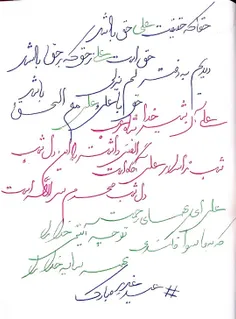 حقا که حقیقت علی حق باشد
حق است علی ز حق که بر حق باشد
دیدیم به دفتر لم یزلی
حق با علی و علی مع الحق باشد
علی آن شیر خدا شاه عرب
الفتی داشته با این دل شب
شب ز اسرار علی آگاه است
دل شب محرم سر الله است
علی ای همای رحمت
تو چه آیتی خدا را
که به ما سوا فکندی
همه سایه هما را
# عید غدیر مبارک